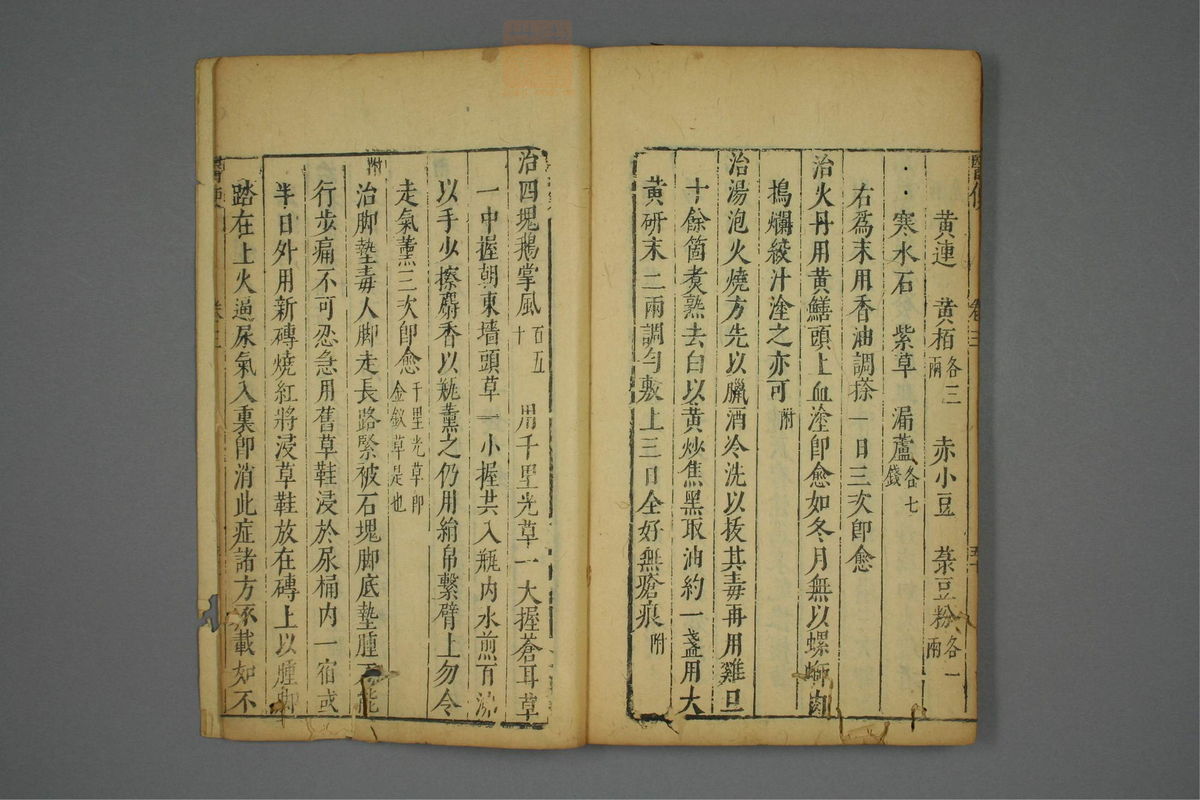 醫便 卷三 五十
黃連 黃栢各三兩 赤小豆 菉豆粉各一兩
寒水石 紫草 漏蘆各七錢
右爲末用香油調搽一日三次卽愈
治火丹用黃鱔頭上血塗卽愈如冬月無以螺螄肉
搗爛絞汁塗之亦可附
治湯泡火燒方先以臘酒冷洗以拔其毒再用雞旦
十餘箇煑熟去白以黃炒焦黑取油約一盞用大
黃研末二兩調勻敷上三日全好無瘡痕附
治四塊鵝掌風百五十 用千里光草一大握蒼耳草
一中握朝東墻頭草一小握共入瓶內水煎百沸
以手少擦麝香以瓶薰之仍用絹帛繫臂上勿令
走氣薰三次卽愈千里光草卽金釵草是也
附治脚墊毒人脚走長路緊被石塊脚底墊腫不能
行步痛不可忍急用舊草鞋浸於尿桶內一宿或
半日外用新磚燒紅將浸草鞋放在磚上以腫脚
踏在上火逼尿氣入裏卽消此症諸方不載如不
醫便 卷三